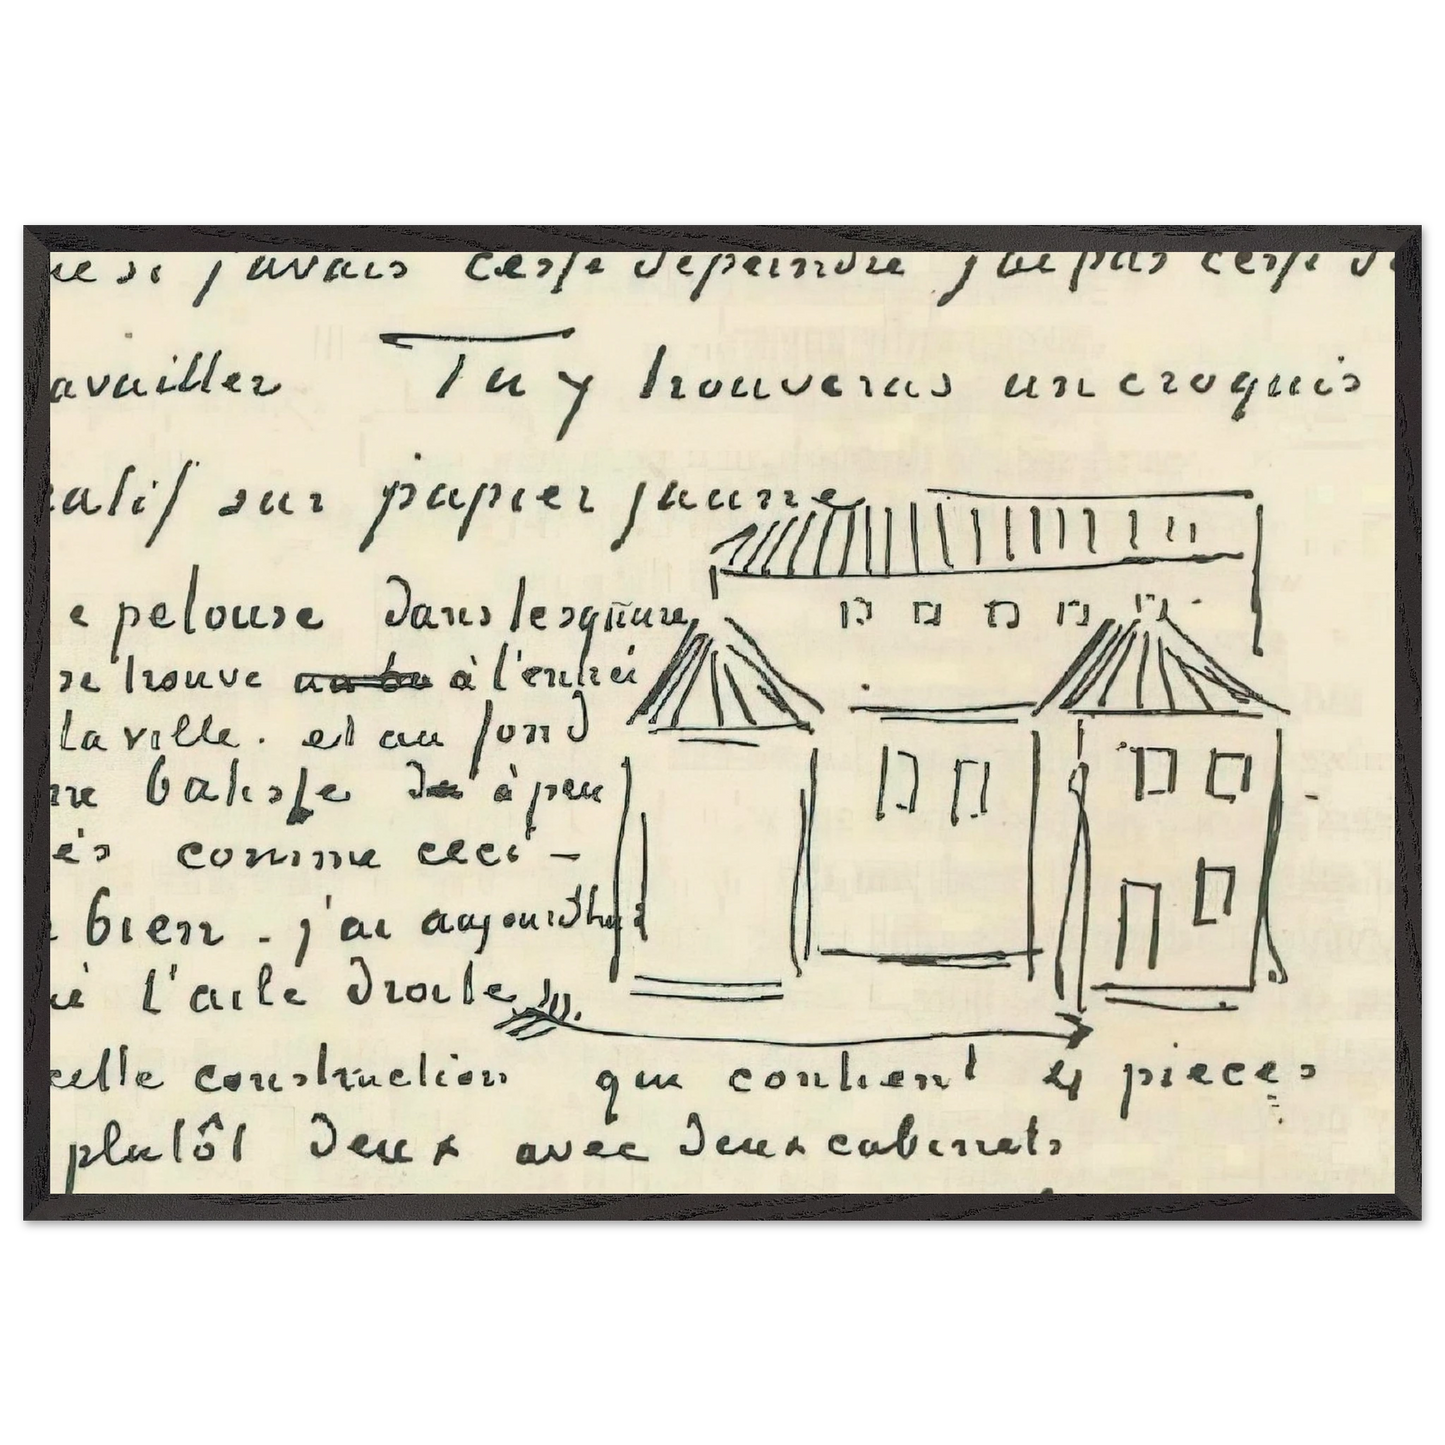 ue si j'avais cessé de peindre j'ai pas cessé de
availler Tu y trouveras un croquis
catif sur papier jaune
e pelouse dans le square
se trouve à l'entrée
la ville. et au fond
ne batisse à peu
ès comme ceci —
bien - j'ai aujourd'hui
l'aile droite
cette construction qui contient 4 pièces
plutôt deux avec deux cabinets